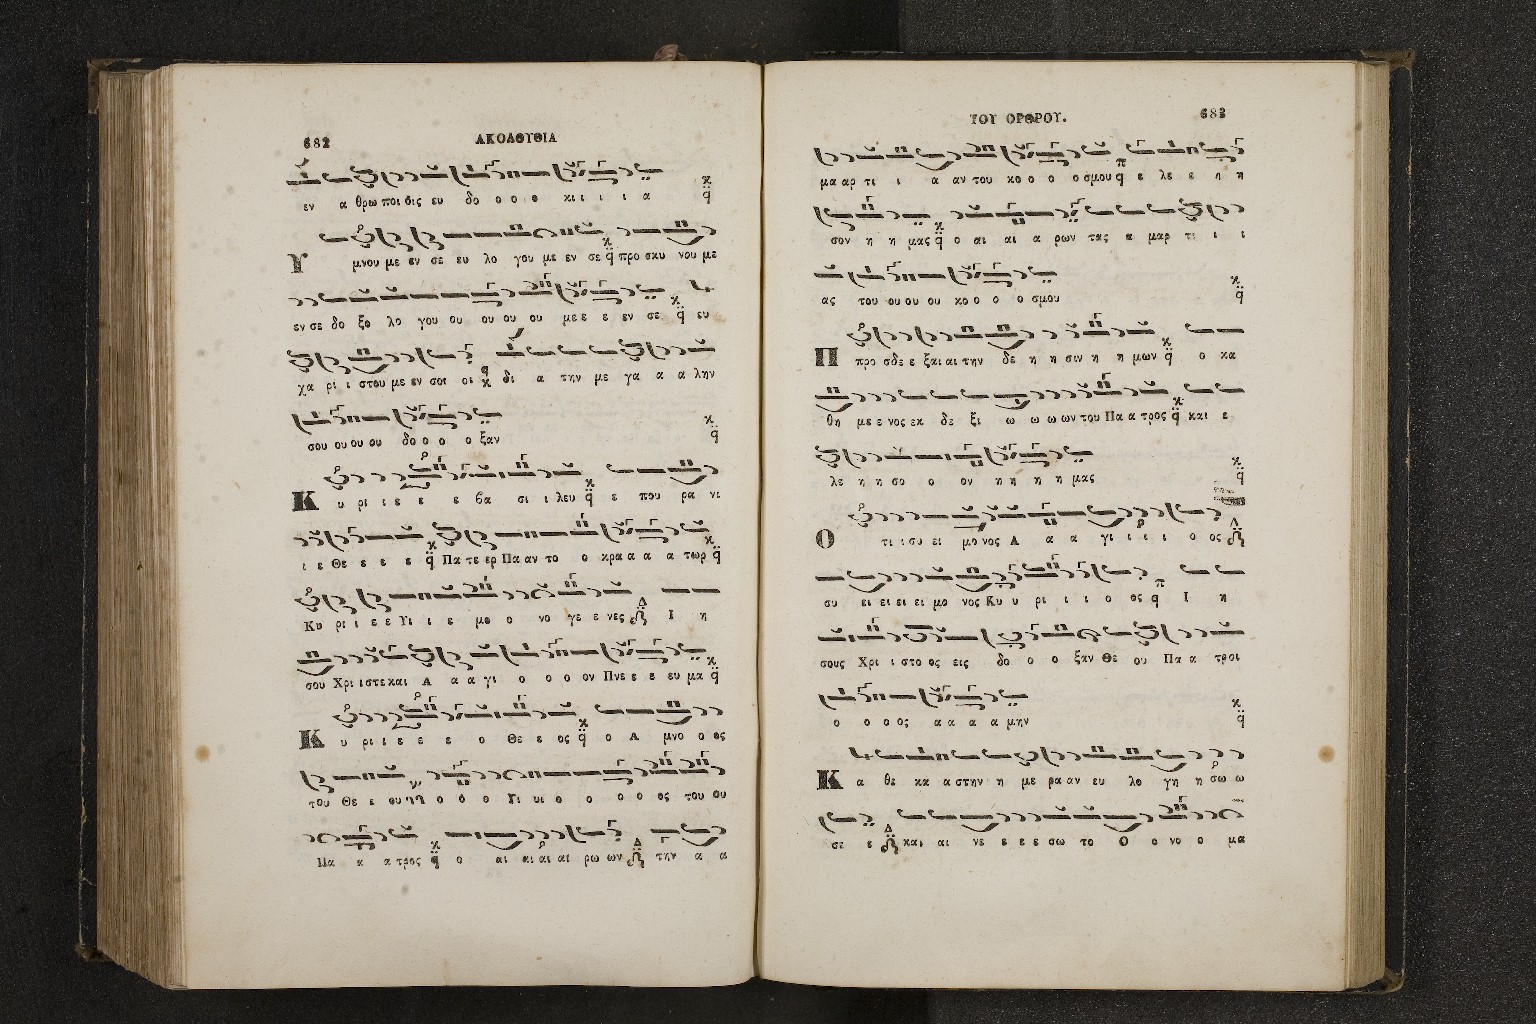 682
ΑΚΟΛΟΥΘΙΑ
εν α θρω ποι οις ευ δο ο ο ο κι ι ι ι α
Υ μνου με εν σε ευ λο γου με εν σε προ σκυ νου με
εν σε δο ξο λο γου ου ου ου ου με ε ε εν σε ευ
χα ρι ι στου με εν σοι οι δι α την με γα α α λην
σου ου ου ου δο ο ο ο ξαν
Κ υ ρι ι ε ε ε βα σι ι λευ ε που ρα νι
ι ε Θε ε ε ε Πα τε ερ Πα αν το ο κρα α α α τωρ
Κυ ρι ι ε ε Υι ι ε μο ο νο γε ε νες Ι η
σου Χρι ι στε και Α α α γι ο ο ο ον Πνε ε ε ευ μα
Κ υ ρι ι ε ε ε ο Θε ε ος ο Α μνο ο ος
του Θε ε ου ο ο ο Υι υι ο ο ο ο ο ος του ου
Πα α α τρος ο αι αι αι αι ρω ων την α α
ΤΟΥ ΟΡΘΡΟΥ.
683
μα αρ τι ι α αν του κο ο ο ο σμου ε λε ε η η
σον η η μας ο αι αι α ρων τας α μαρ τι ι ι
ας του ου ου ου κο ο ο ο σμου
Π προ σδε ε ξαι αι την δε η η σιν η η μων ο κα
θη με ε νος εκ δε ξι ω ω ω ων του Πα α τρος και ε
λε η η σο ο ον η η η η μας
Ο τι ι συ ει μο νος Α α α γι ι ι ι ο ος
συ ει ει ει ει μο νος Κυ υ ρι ι ι ο ος Ι η
σους Χρι ι στο ος εις δο ο ο ξαν Θε ου Πα α τροι
ο ο ο ος α α α α μην
Κ α θε κα α στην η με ρα αν ευ λο γη η σω ω
σε ε και αι νε ε ε ε σω το Ο ο νο ο μα